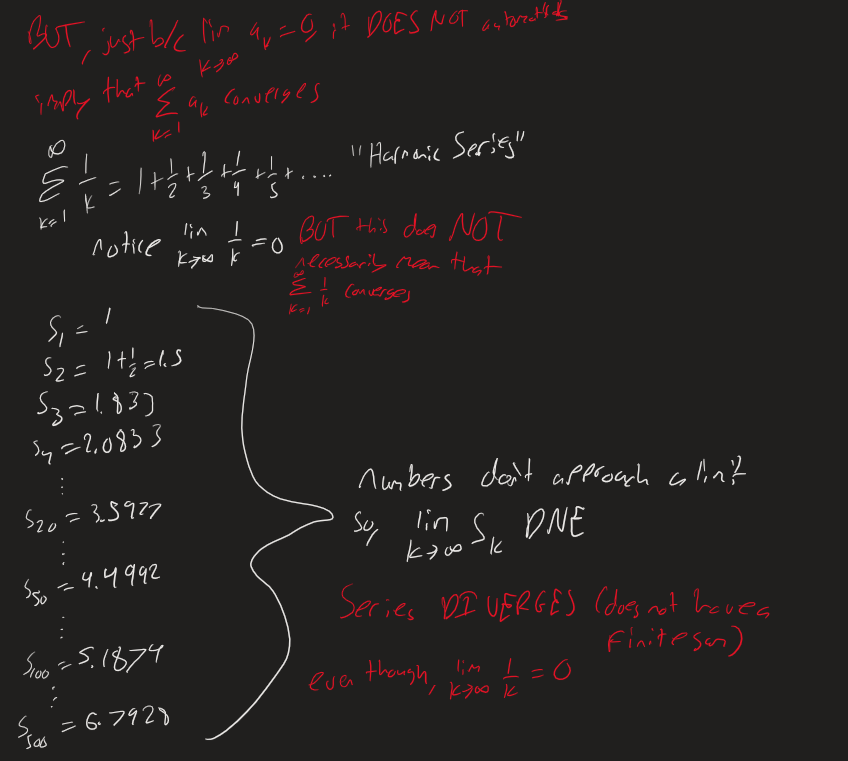 BUT, just b/c lim k→∞ a_k = 0, it DOES NOT automatically
imply that ∑ k=1 ∞ a_k converges
∑ k=1 ∞ 1/k = 1 + 1/2 + 1/3 + 1/4 + 1/5 + .... "Harmonic Series"
notice lim k→∞ 1/k = 0 BUT this does NOT
necessarily mean that
∑ k=1 ∞ 1/k converges
S_1 = 1
S_2 = 1 + 1/2 = 1.5
S_3 = 1.833
S_4 = 2.0833
⋮
S_20 = 3.5977
⋮
S_50 = 4.4992
⋮
S_100 = 5.1874
⋮
S_500 = 6.7928
numbers don't approach a limit
so, lim k→∞ S_k DNE
Series DIVERGES (does not have a
finite sum)
even though, lim k→∞ 1/k = 0